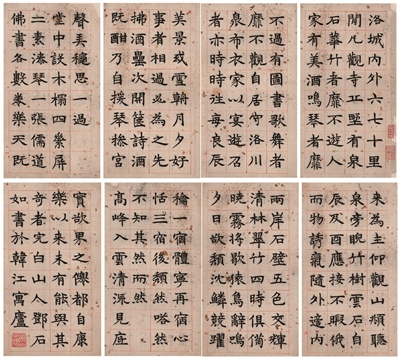 洛城內外六七十里
間凡觀寺丘墅有泉
石華竹者靡不遊人
家有美酒鳴琴者靡
不過有圖書歌舞者
靡不觀自居守洛川
泉布衣家以宴遊召
者亦時時往每良辰
美景或雪朝月夕好
事者相過必為之先
拂酒罍次開篋詩酒
既酣乃自援琴操宮
聲弄穐思一過
堂中設木榻四素屏
二素漆琴一張儒道
佛書各數卷樂天既
來為主仰觀山頫聽
泉旁睨竹樹雲石自
辰及酉應接不暇俄
而物誘氣隨外適內
兩岸石壁五色交輝
清林翠竹四時俱備
曉霧將歇猿鳥亂鳴
夕日欲頹沈鱗競躍
穌一宿體寧再宿心
恬三宿後頹然嗒然
不知其然而然
高峰入雲清流見底
實欲界之僊都自康
樂以來未有能與其
奇者完白山人鄧石
如書於韓江寓廬